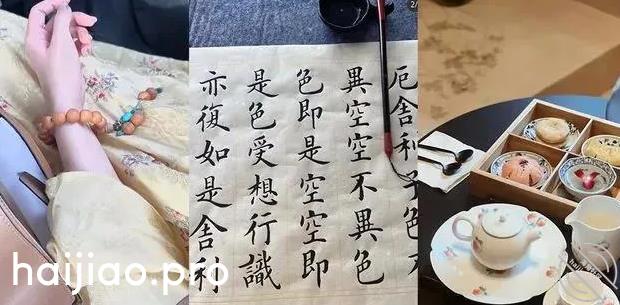 厄舍利子色不
異空空不異色
色即是空空即
是色受想行識
亦復如是舍利
2/
haijiao.pro